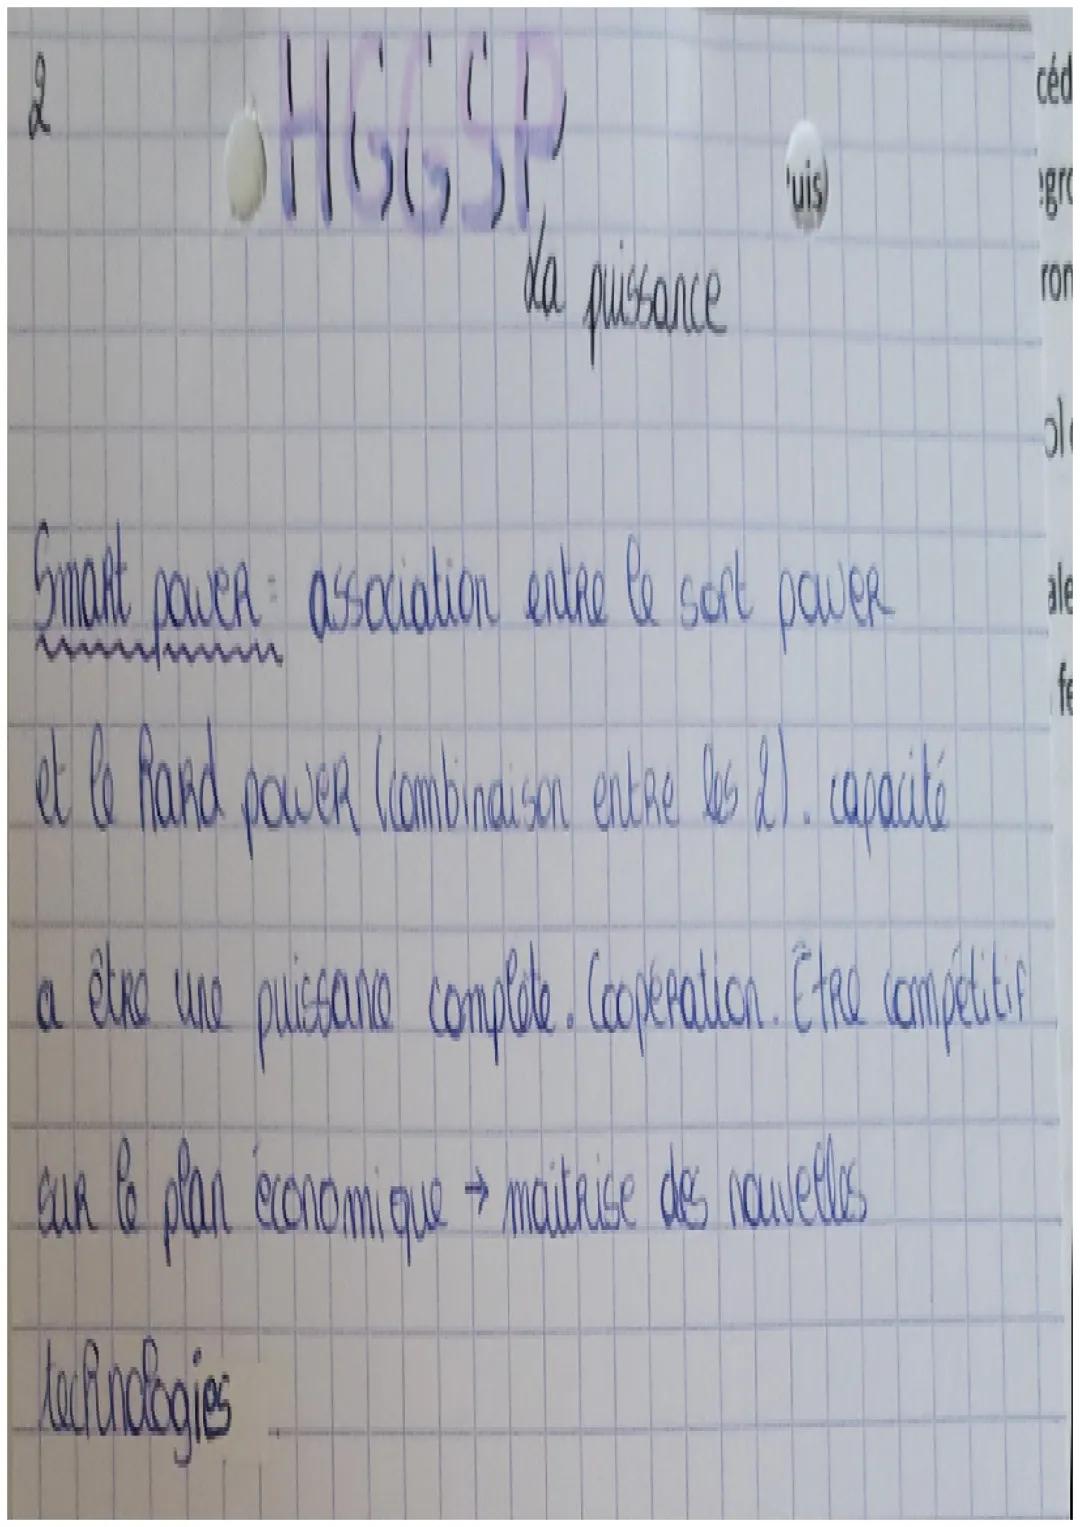 2
HGGSP
uis)
La puissance
céd
egro
ron
ale
fe
Smart power : association entre le soft power
et le hard power (combinaison entre les 2). capacité
a être une puissance complète. Coopération. Être compétitif
sur le plan économique → maitrise des nouvelles
technologies